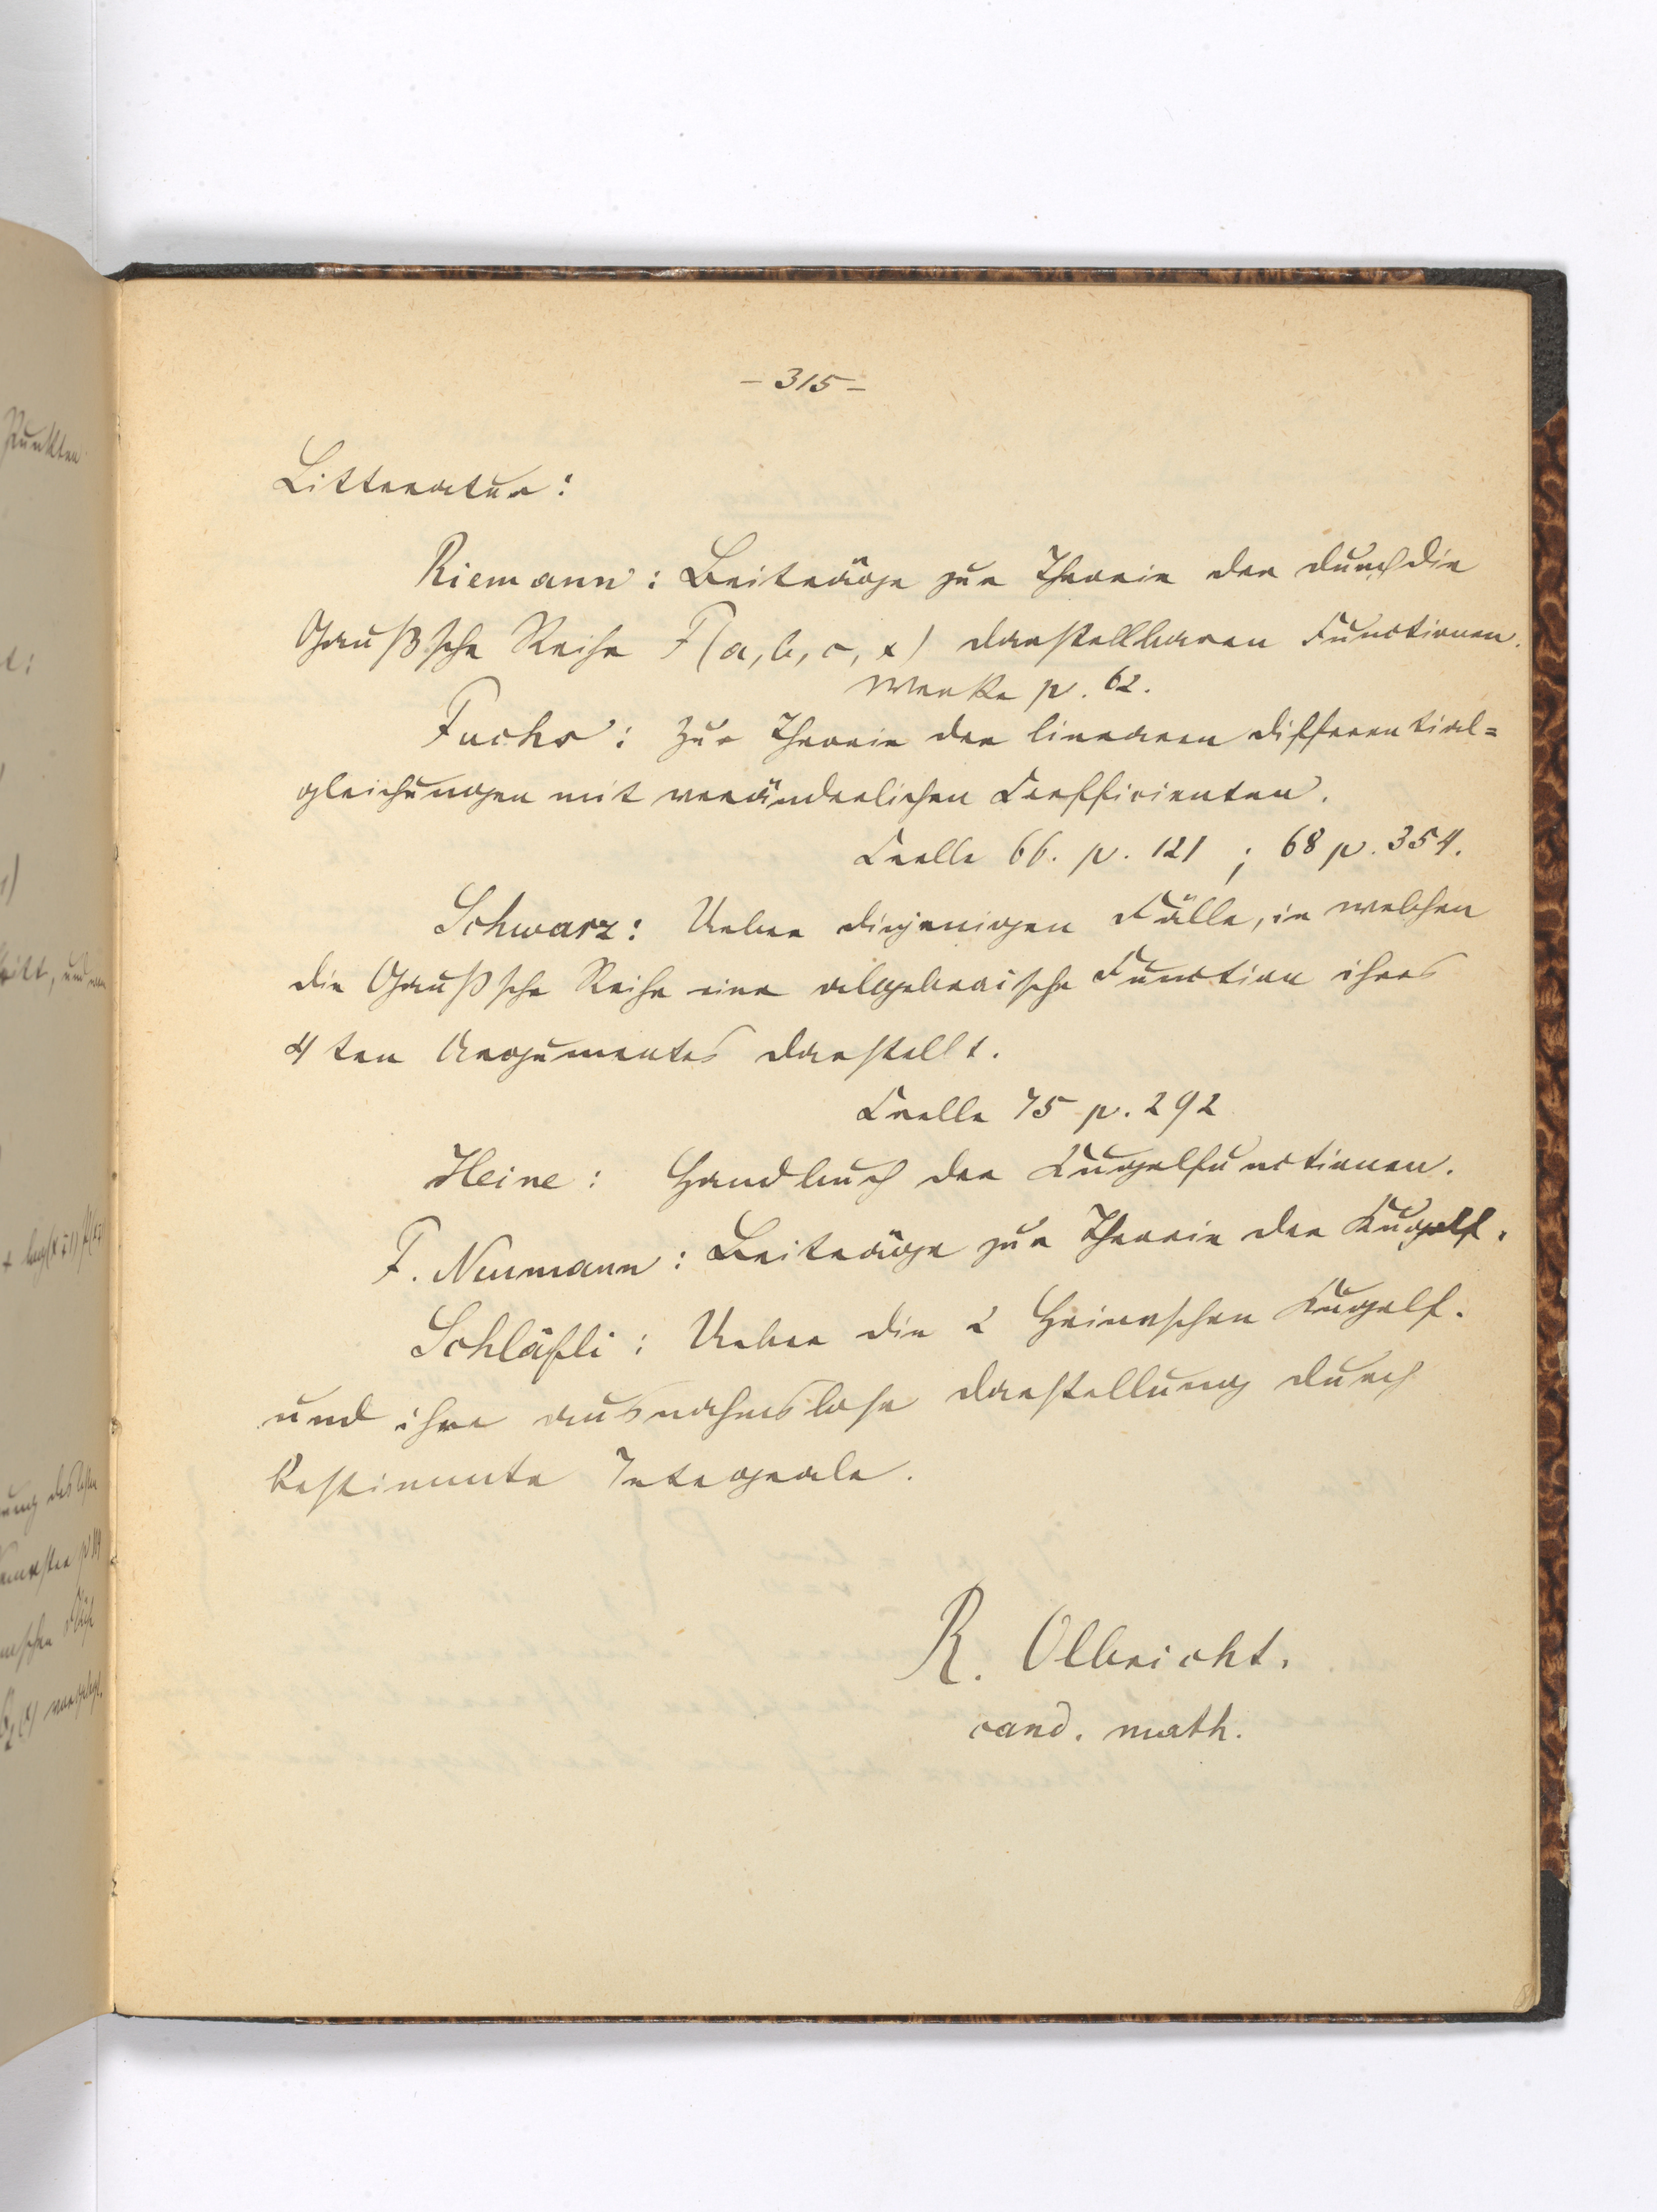 - 315 -
Litteratur:
Riemann: Beiträge zur Theorie der durch die
Gaußsche Reihe F(a, b, c, x) darstellbaren Functionen.
Werke p. 62.
Fuchs: Zur Theorie der linearen Differential=
gleichungen mit veränderlichen Coefficienten.
Crelle 66. p. 121 ; 68 p. 354.
Schwarz: Ueber diejenigen Fälle, in welchen
die Gaußsche Reihe eine algebraische Function ihres
4ten Argumentes darstellt.
Crelle 75 p. 292
Heine: Handbuch der Kugelfunctionen.
F. Neumann: Beiträge zur Theorie der Kugelf.
Schläfli: Ueber die 2 Heineschen Kugelf.
und ihre ausnahmslose Darstellung durch
bestimmte Integrale.
R. Olbricht.
cand. math.
Punkten